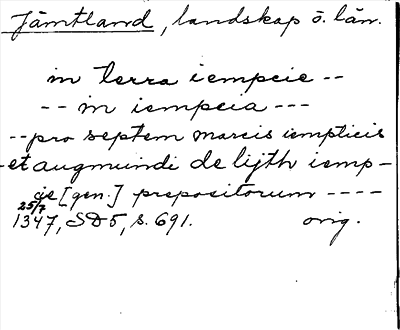 Jämtland, landskap o. län.
in terra iempcie --
-- in iempcia ---
-- pro septem marcis iempticis
- et augmundi de lijth iemp-
cie [gen.] prepositorum ----
25/7
1347, SD5, s. 691. orig.